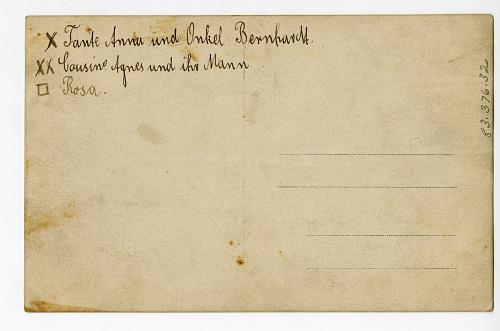 X Tante Anna und Onkel Bernhardt.
XX Cousine Agnes und ihr Mann
□ Rosa.
83.376.32